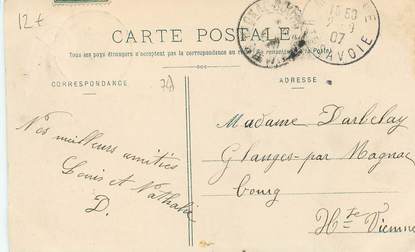 12€
CARTE POSTALE
Tous les pays étrangers n'acceptent pas la correspondance au
CORRESPONDANCE
ADRESSE
07
SAVOIE
Nos meilleurs amitiés
Louis et Nathalie
D.
Madame Darbelay
Glanges-par Magnac
bourg
Hte Vienne